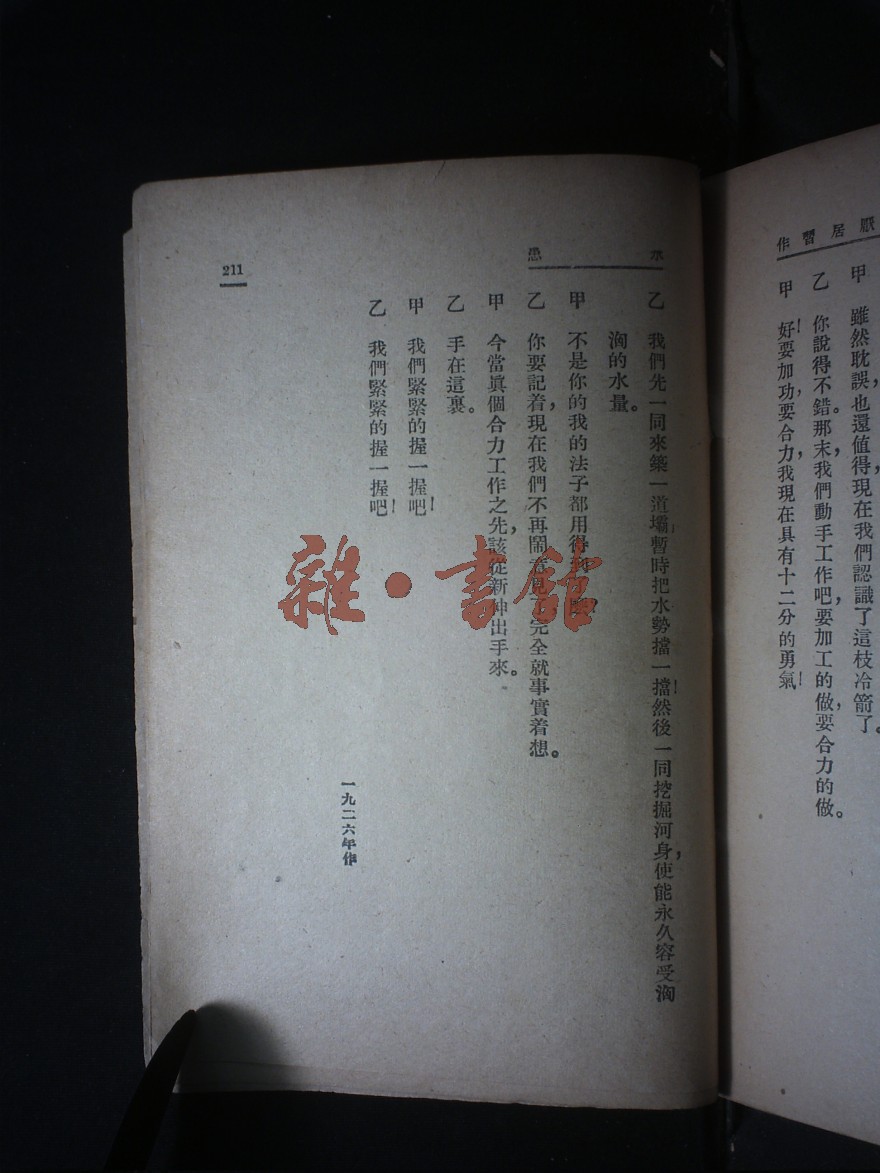 厭居習作
甲 雖然耽誤，也還值得，現在我們認識了這枝冷箭了。
乙 你說得不錯。那末，我們動手工作吧，要加工的做，要合力的做。
甲 好！要加功，要合力，我現在具有十二分的勇氣！
水患
乙 我們先一同來築一道壩，暫時把水勢擋一擋！然後一同挖掘河身，使能永久容受洶
洶的水量。
甲 不是你的我的法子都用得到
乙 你要記着，現在我們不再鬧意見，完全就事實着想。
甲 今當眞個合力工作之先，該從新伸出手來。
乙 手在這裏。
甲 我們緊緊的握一握吧！
乙 我們緊緊的握一握吧！
一九二六年作
211
雜·書館